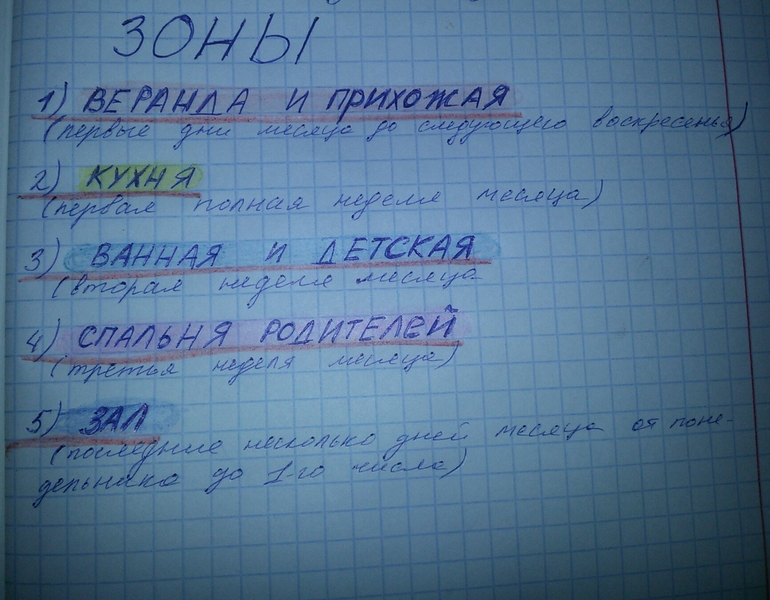 ЗОНЫ
1) ВЕРАНДА И ПРИХОЖАЯ
(первые дни месяца до следующего воскресенья)
2) КУХНЯ
(первая полная неделя месяца)
3) ВАННАЯ И ДЕТСКАЯ
(вторая неделя месяца
4) СПАЛЬНЯ РОДИТЕЛЕЙ
(третья неделя месяца)
5) ЗАЛ
(последние несколько дней месяца от поне-
дельника до 1-го числа)